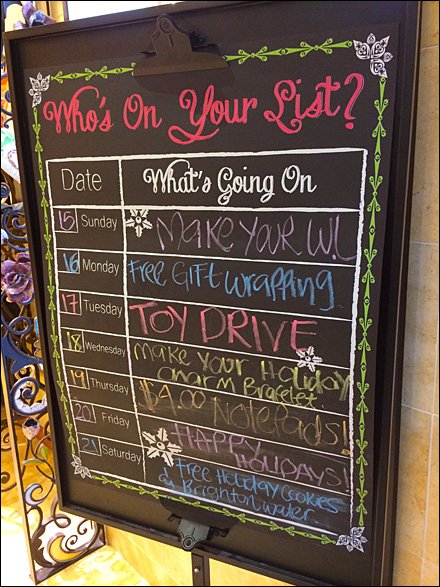 Who's On Your List?
Date What's Going On
15 Sunday MAKE YOUR W.L
16 Monday Free GIFT Wrapping
17 Tuesday TOY DRIVE
18 Wednesday Make Your Holiday
charm Bracelet.
19 Thursday $4.00 Notepads!
20 Friday HAPPY
HOLIDAYS!
21 Saturday Free Holiday Cookies
& Brighton water.